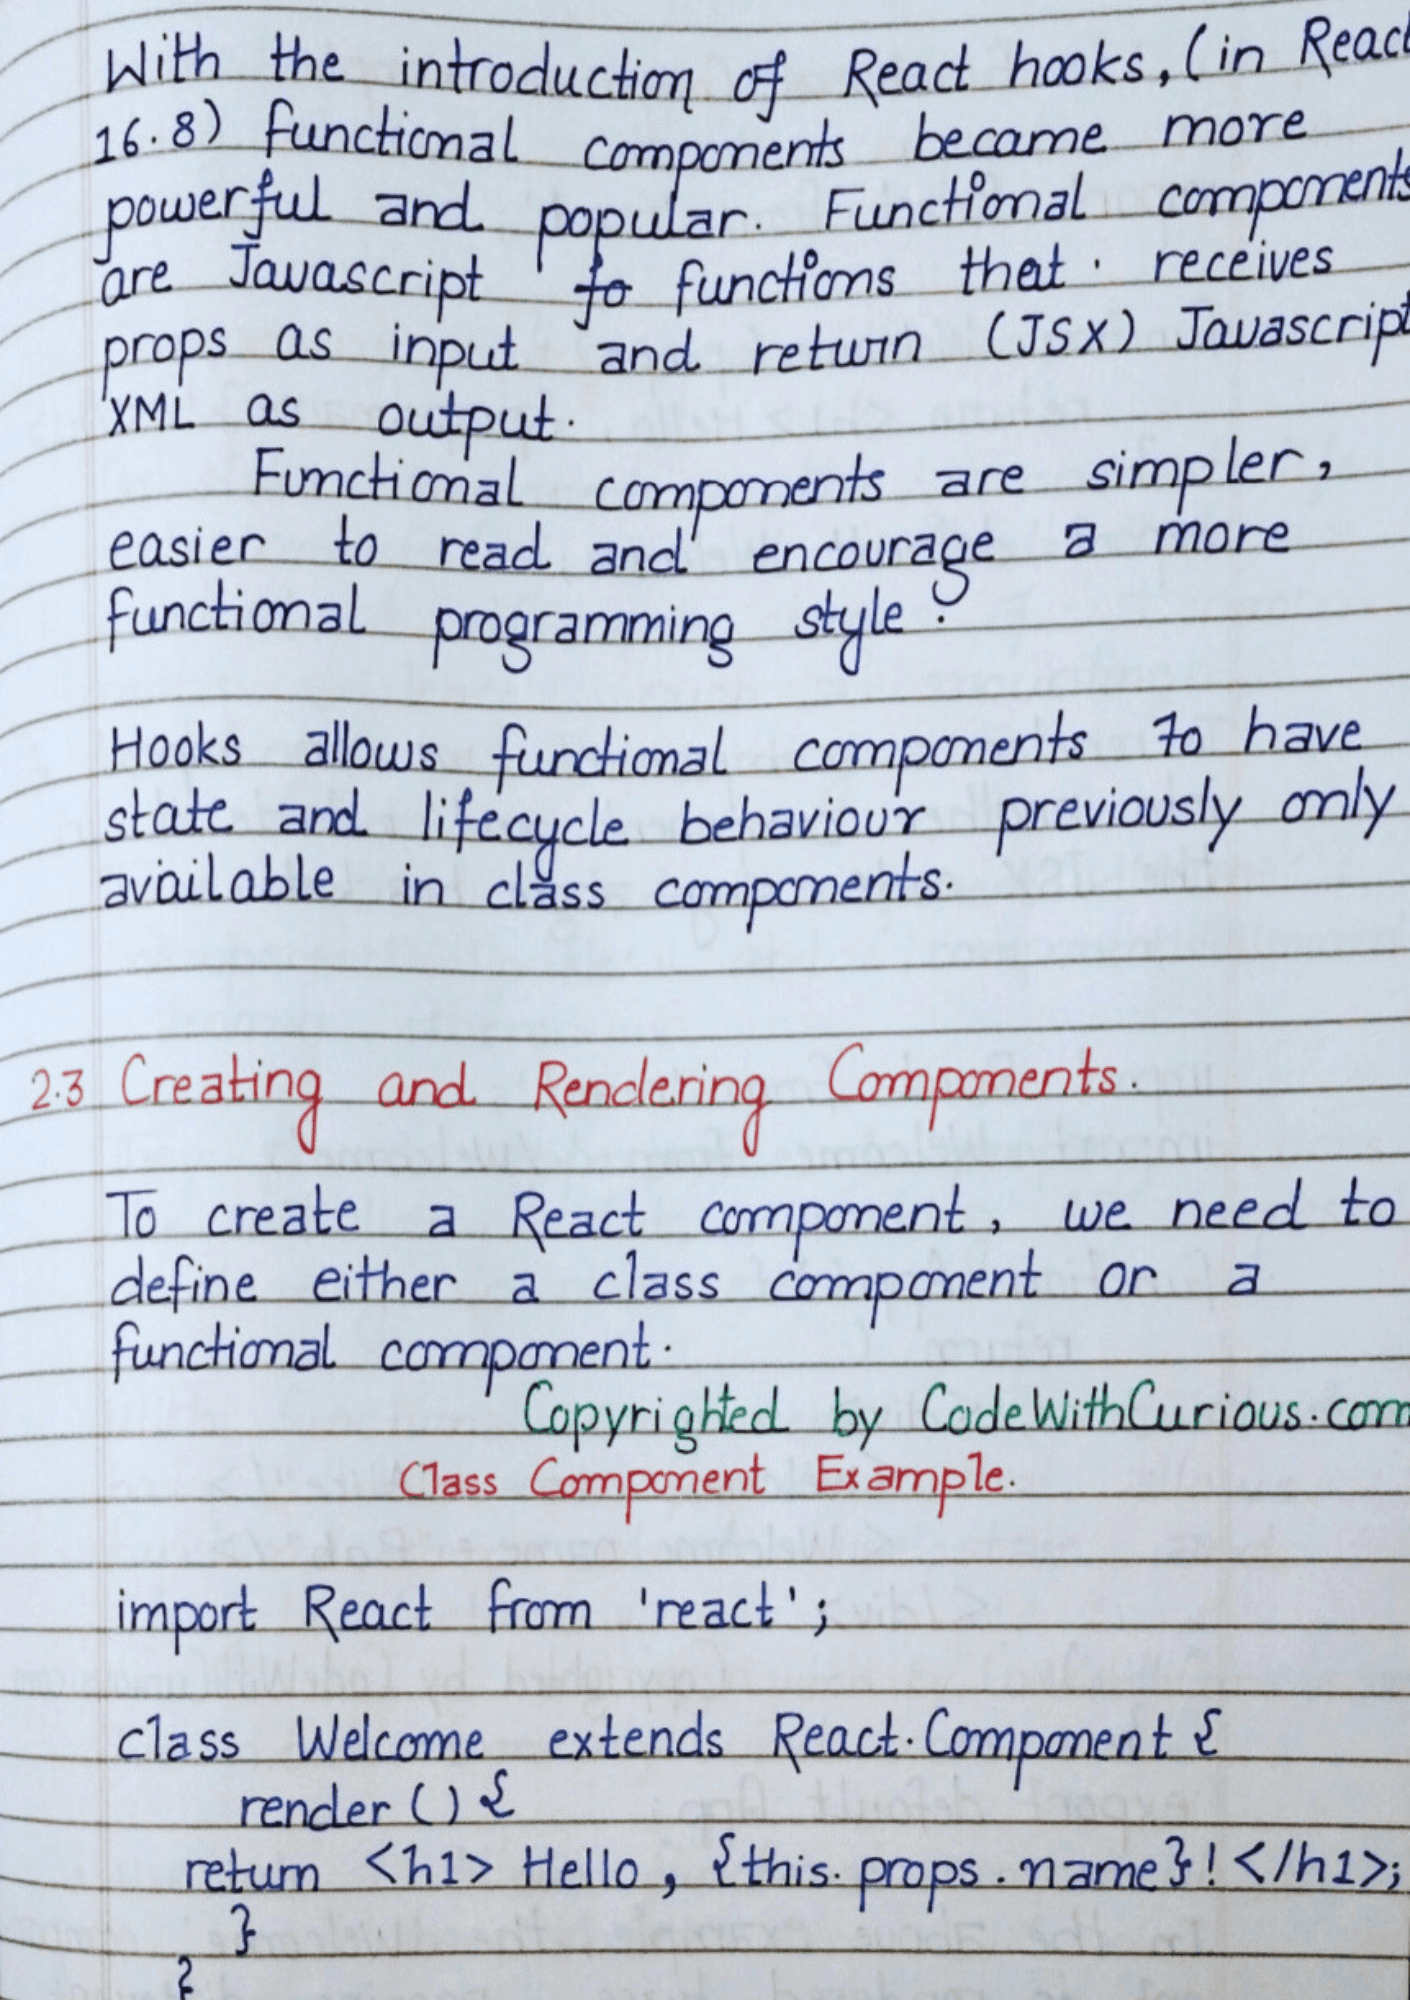 With the introduction of React hooks, (in React
16.8) functional components became more
powerful and popular. Functional components
are Javascript fo functions that. receives
props as input and return (JSX) Javascript
XML as output.
Functional components are simpler,
easier to read and encourage a more
functional programming style.
Hooks allows functional components to have
state and lifecycle behaviour previously only
available in class components.
2.3 Creating and Rendering Components.
To create a React component, we need to
define either a class component or a
functional component.
Copyrighted by CodeWithCurious.com
Class Component Example.
import React from 'react';
class Welcome extends React.Component {
render () {
return <h1> Hello, {this.props.name}! </h1>;
}
}